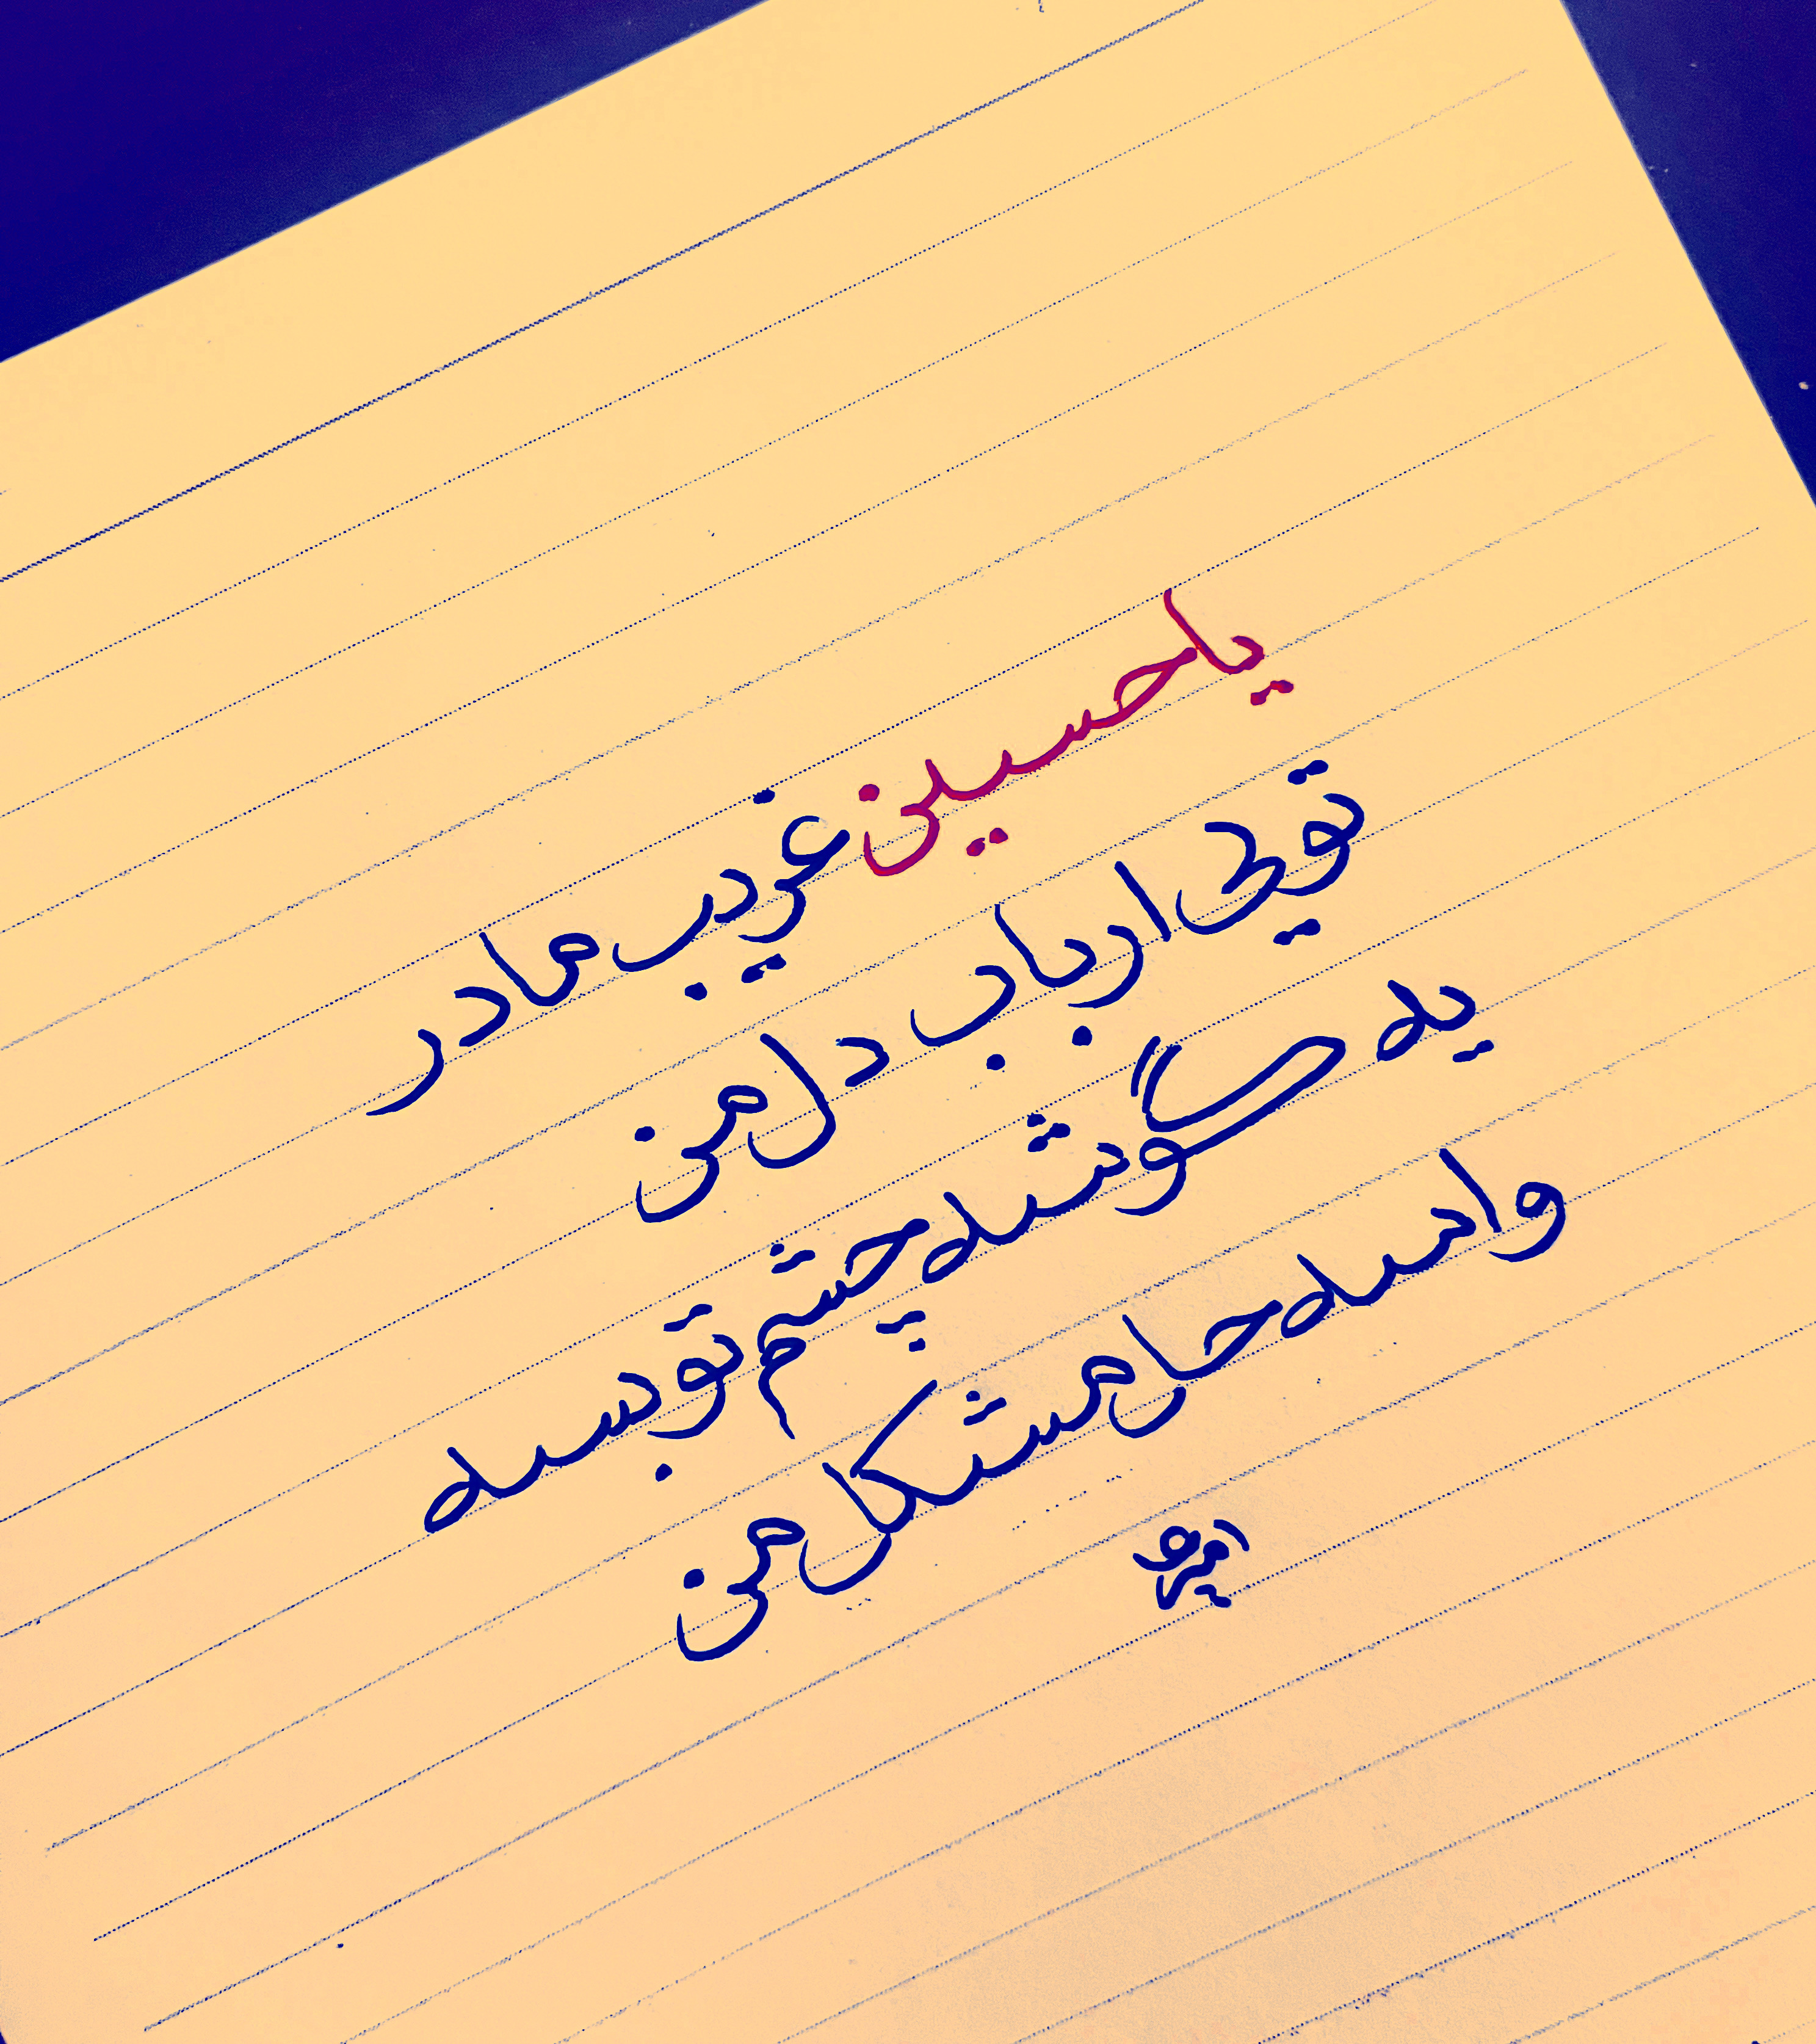 یا حسین غریب مادر
تویی ارباب دل من
یه گوشه چشم تو بسه
واسه حل مشکل من